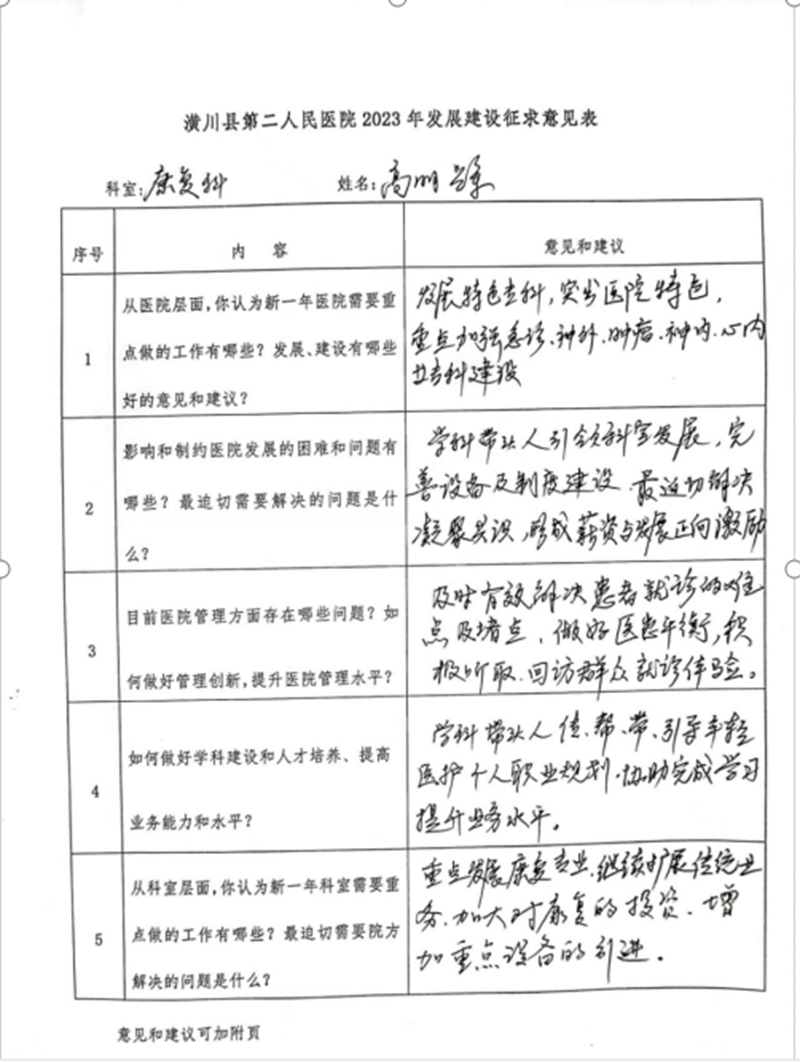 潢川县第二人民医院 2023 年发展建设征求意见表
科室:康复科 姓名:高明
序号 内 容 意见和建议
1
从医院层面,你认为新一年医院需要重
点做的工作有哪些?发展、建设有哪些
好的意见和建议?
发展特色专科,突出医院特色,
重点加强急诊、神外、肿瘤、神内、心内
专科建设
2
影响和制约医院发展的困难和问题有
哪些?最迫切需要解决的问题是什
么?
学科带头人引领科室发展,完
善设备及制度建设 最迫切解决
凝聚共识,形成薪资与发展正向激励
3
目前医院管理方面存在哪些问题?如
何做好管理创新,提升医院管理水平?
及时有效解决患者就诊的难
点及堵点、做好医患平衡,积
极听取、回访群众就诊体验。
4
如何做好学科建设和人才培养、提高
业务能力和水平?
学科带头人传、帮、带、引导年轻
医护个人职业规划、协助完成学习
提升业务水平。
5
从科室层面,你认为新一年科室需要重
点做的工作有哪些?最迫切需要院方
解决的问题是什么?
重点发展康复专业、继续扩展传统业
务、加大对康复的投资、增
加重点设备的引进。
意见和建议可加附页